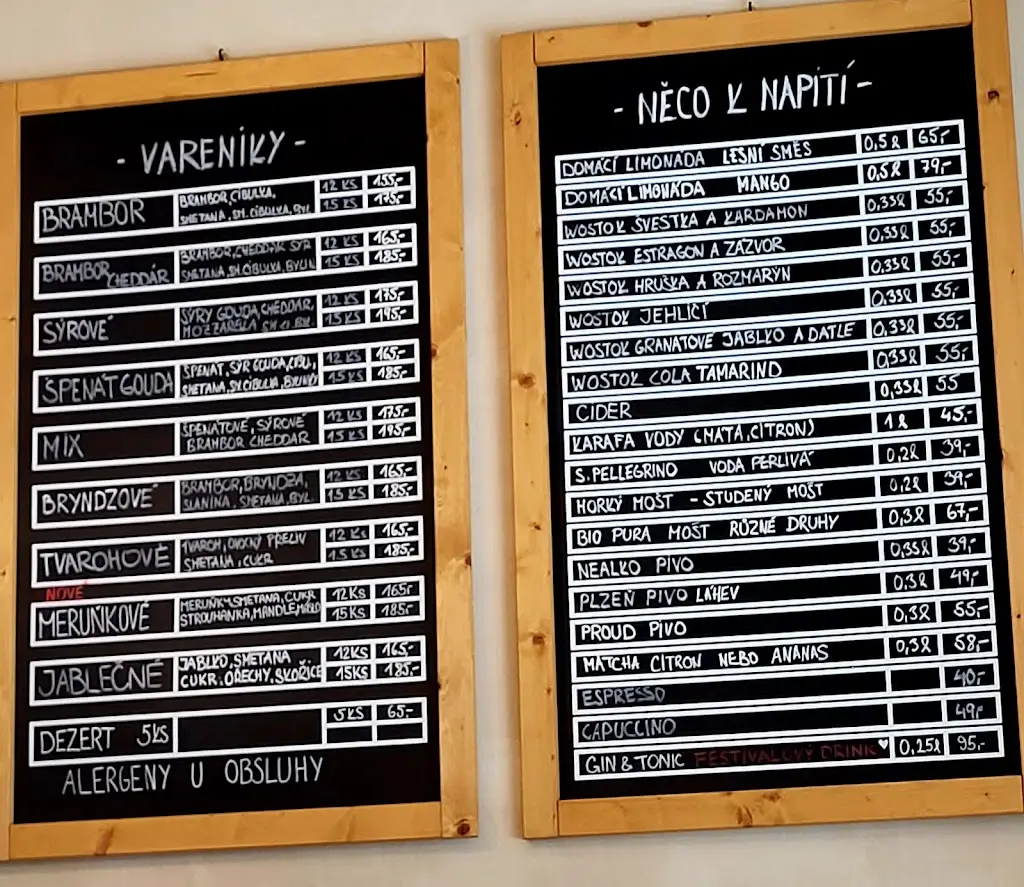 - VARENÍKY -
BRAMBOR BRAMBOR, CIBULKA, 12 KS 155,-
SMETANA, SM. CIBULKA, BYL 15 KS 175,-
BRAMBOR CHEDDÁR BRAMBOR, CHEDDAR SÝR 12 KS 165,-
SMETANA, SM. CIBULKA, BYLIN 15 KS 185,-
SÝROVÉ SÝRY GOUDA, CHEDDAR, 12 KS 175,-
MOZZARELLA SM. CI. BYL. 15 KS 195,-
ŠPENÁT GOUDA ŠPENÁT, SÝR GOUDA, CIBU, 12 KS 165,-
SMETANA, SM. CIBULKA, BYLINKY 15 KS 185,-
MIX ŠPENÁTOVÉ, SÝROVÉ 12 KS 175,-
BRAMBOR CHEDDAR 15 KS 195,-
BRYNDZOVÉ BRAMBOR, BRYNDZA, 12 KS 165,-
SLANINA, SMETANA, BYL. 15 KS 185,-
TVAROHOVÉ TVAROH, OVOCNÝ PŘELIV 12 KS 165,-
SMETANA, CUKR 15 KS 185,-
NOVÉ
MERUŇKOVÉ MERUŇKY, SMETANA, CUKR 12KS 165,-
STROUHANKA, MANDLE, MÁSLO 15KS 185,-
JABLEČNÉ JABLKO, SMETANA 12KS 165,-
CUKR, OŘECHY, SKOŘICE 15KS 185,-
DEZERT 5KS 5KS 65,-
ALERGENY U OBSLUHY
- NĚCO K NAPITÍ -
DOMÁCÍ LIMONÁDA LESNÍ SMĚS 0,5l 65,-
DOMÁCÍ LIMONÁDA MANGO 0,5l 79,-
WOSTOK ŠVESTKA A KARDAMON 0,33l 55,-
WOSTOK ESTRAGON A ZÁZVOR 0,33l 55,-
WOSTOK HRUŠKA A ROZMARÝN 0,33l 55,-
WOSTOK JEHLIČÍ 0,33l 55,-
WOSTOK GRANÁTOVÉ JABLKO A DATLE 0,33l 55,-
WOSTOK COLA TAMARIND 0,33l 55,-
CIDER 0,33l 55
KARAFA VODY (MÁTA, CITRON) 1l 45,-
S. PELLEGRINO VODA PERLIVÁ 0,2l 39,-
HORKÝ MOŠT - STUDENÝ MOŠT 0,2l 39,-
BIO PURA MOŠT RŮZNÉ DRUHY 0,3l 67,-
NEALKO PIVO 0,33l 39,-
PLZEŇ PIVO LÁHEV 0,3l 49,-
PROUD PIVO 0,3l 55,-
MATCHA CITRON NEBO ANANAS 0,3l 58,-
ESPRESSO 40,-
CAPUCCINO 49,-
GIN & TONIC FESTIVALOVÝ DRINK ♥ 0,25l 95,-